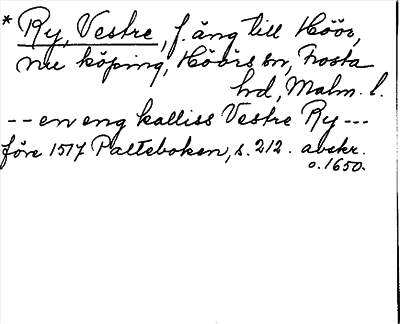 * Ry, Vestre, f. äng till Höör,
nu köping, Höörs sn, Frosta
hd, Malm. l.
-- en eng kalliss Vestre Ry ---
före 1517 Palteboken, s. 212. avskr.
o. 1650.